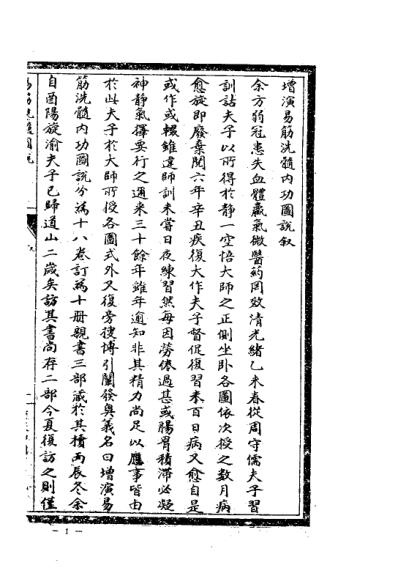 增演易筋洗髓內功圖說叙
余方弱冠患失血體羸氣微醫葯罔效清光緒乙未春從周守儒夫子習
訓詁夫子以所得於静一空悟大師之正側坐卧各圖依次授之數月病
愈旋即廢棄閱六年辛丑疾復大作夫子督促復習未百日病又愈自是
或作或輟雖違師訓未嘗日夜練習然每因勞倦過甚或腸胃積滯必凝
神静氣擇要行之邇來三十餘年雖年邁知非其精力尚足以應事皆由
於此夫子於大師所授各圖式外又復旁搜博引闡發奥義名曰增演易
筋洗髓内功圖說分為十八卷訂為十册親書三部藏於其樓丙辰冬余
自酉陽旋渝夫子已歸道山二歲矣訪其書尚存二部今夏復訪之則僅
易筋洗髓圖說
- 1 -